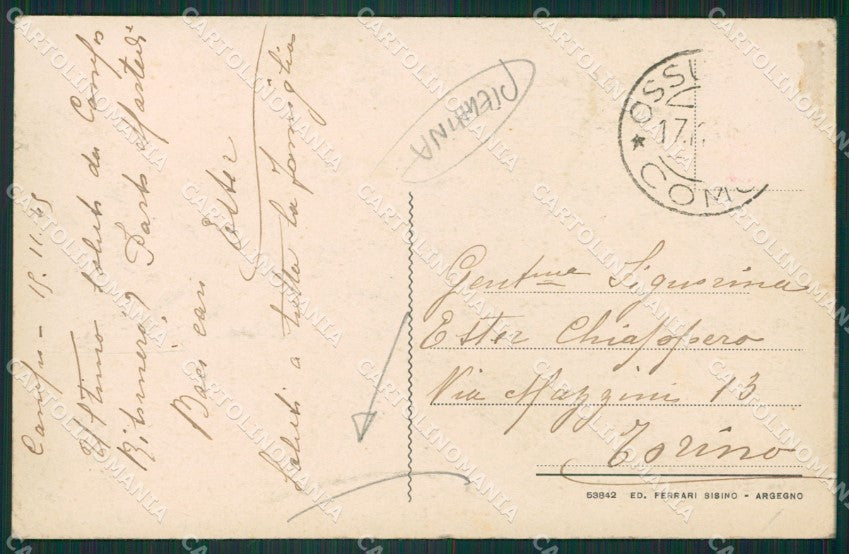 Campo - 15.11.45
Ultimo saluto da Campo
Ritornerò Parto Martedì
Baci cari Ester
Saluti a tutta la famiglia
PIERINA
OSSU
17.
COMO
Gent.me Signorina
Ester Chiappero
Via Mazzini 13
Torino
53842 ED. FERRARI SISINO - ARGEGNO
CARTOLINOMANIA